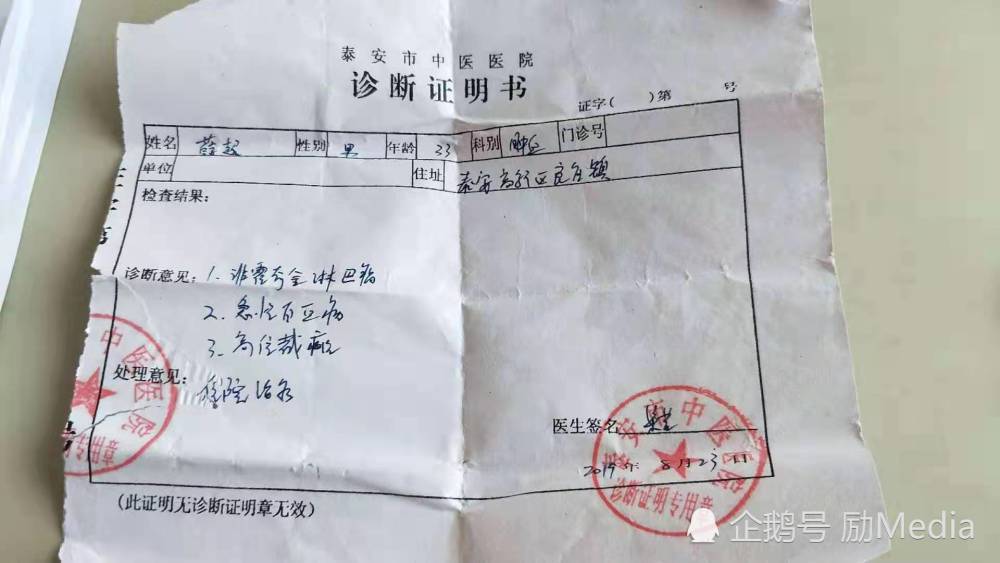 泰安市中医医院
诊断证明书
证字( )第 号
姓名 薛超 性别 男 年龄 33 科别 肿瘤 门诊号
单位 住址 泰安高新区良庄镇
检查结果:
诊断意见: 1. 非霍奇金淋巴瘤
2. 急性白血病
3. 高位截瘫
处理意见: 住院治疗
医生签名
2019年8月23日
(此证明无诊断证明章无效)
中医医院
章用专
泰安市中医医院
诊断证明专用章
企鹅号 励Media